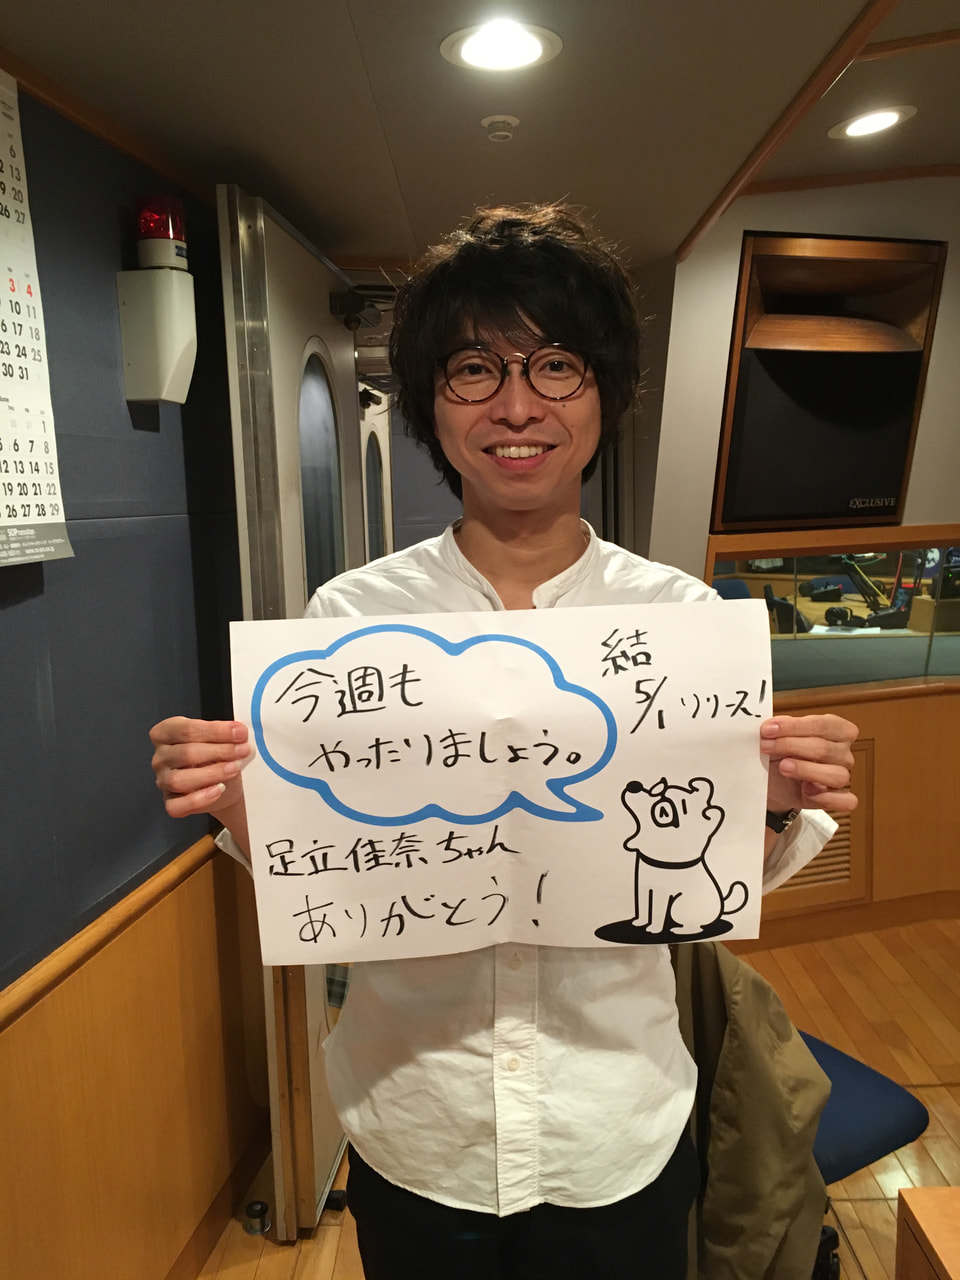 6
12 13
19 20
26 27
3 4
10 11
16 17 18
23 24 25
30 31
1
5 6 7 8
12 13 14 15
19 20 21 22
26 27 28 29
EXCLUSIVE
今週も
やったりましょう。
結
5/1 リリース!
足立佳奈ちゃん
ありがとう!